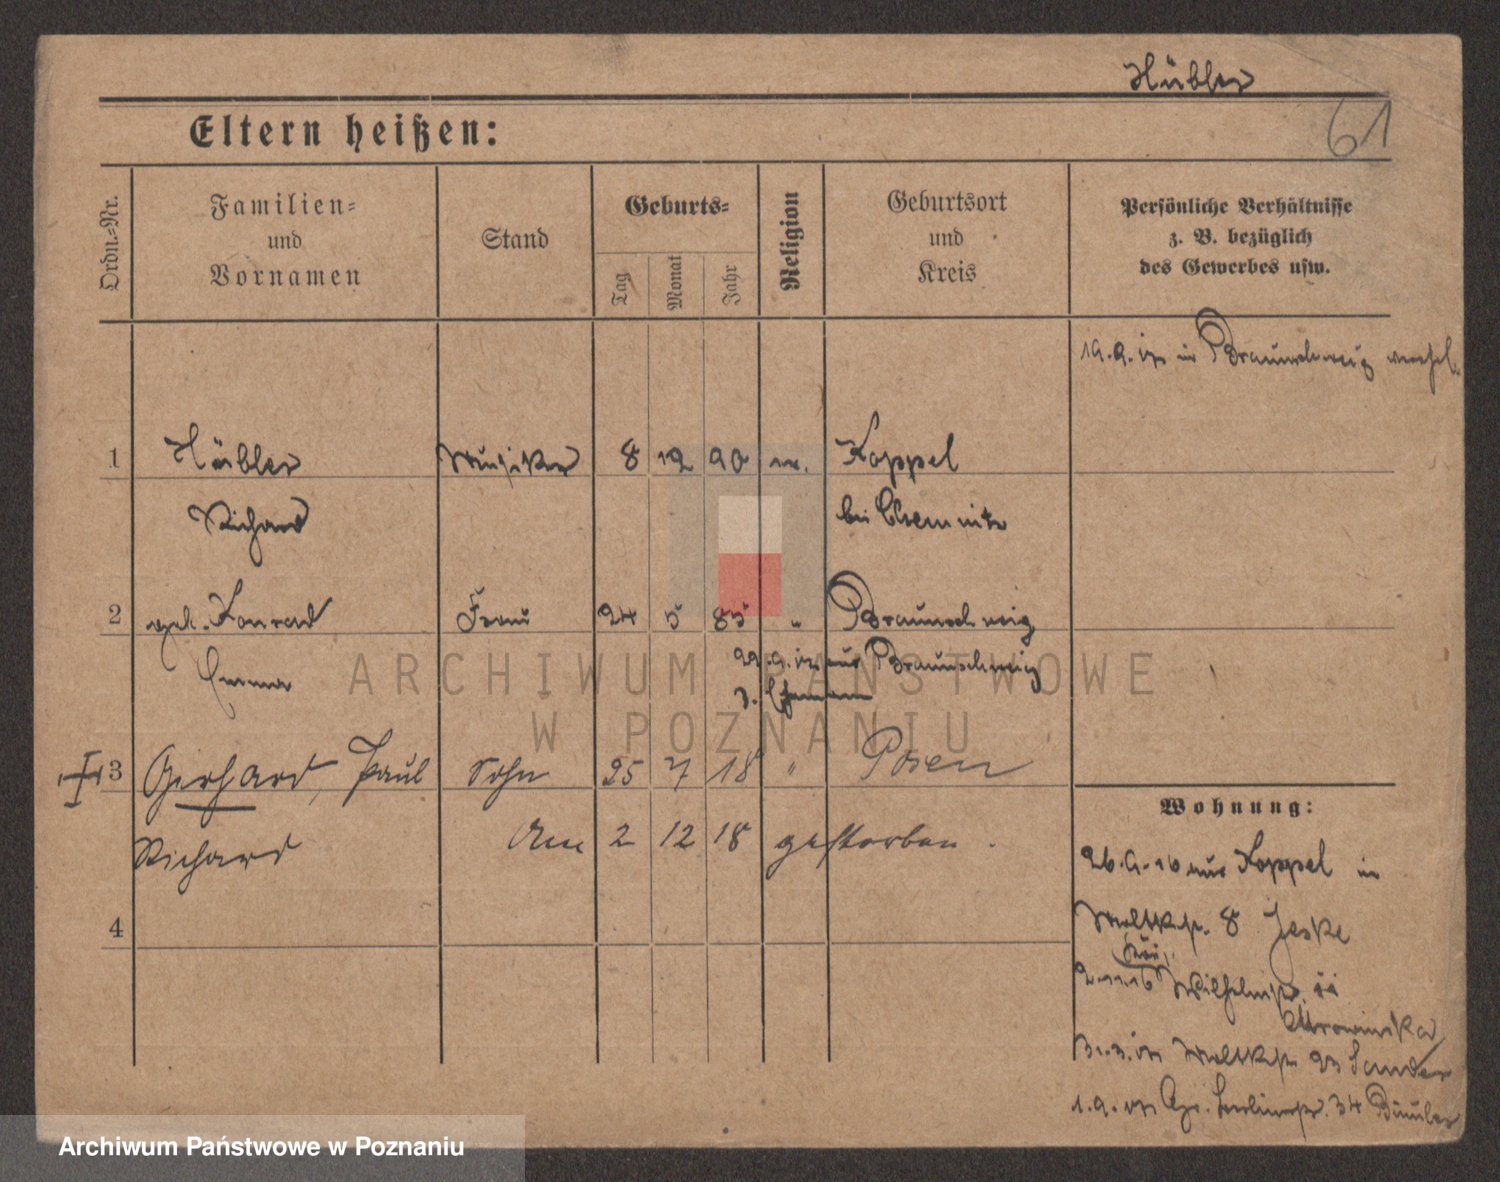 Hübler
61
Eltern heißen:
Ordn.-Nr.
Familien- und Vornamen
Stand
Geburts-
Tag
Monat
Jahr
Religion
Geburtsort und Kreis
Persönliche Verhältnisse
z. B. bezüglich
des Gewerbes usw.
in Braunschweig
1 Hübler Musiker 8 12 90 Koppel
Richard bei Chemnitz
2 geb. Konrad Frau 24 5 85 " Braunschweig
Emma aus Braunschweig
3 Gerhard, Paul Sohn 25 7 18 " Posen
Richard Am 2 12 18 gestorben.
4
Wohnung:
26.9.16 aus Koppel in
Moltkestr. 8 Jeske
2.11.16 Wilhelmstr.
Mrowinska
Moltkestr. 23 Sander
34
ARCHIWUM PAŃSTWOWE
W POZNANIU
Archiwum Państwowe w Poznaniu